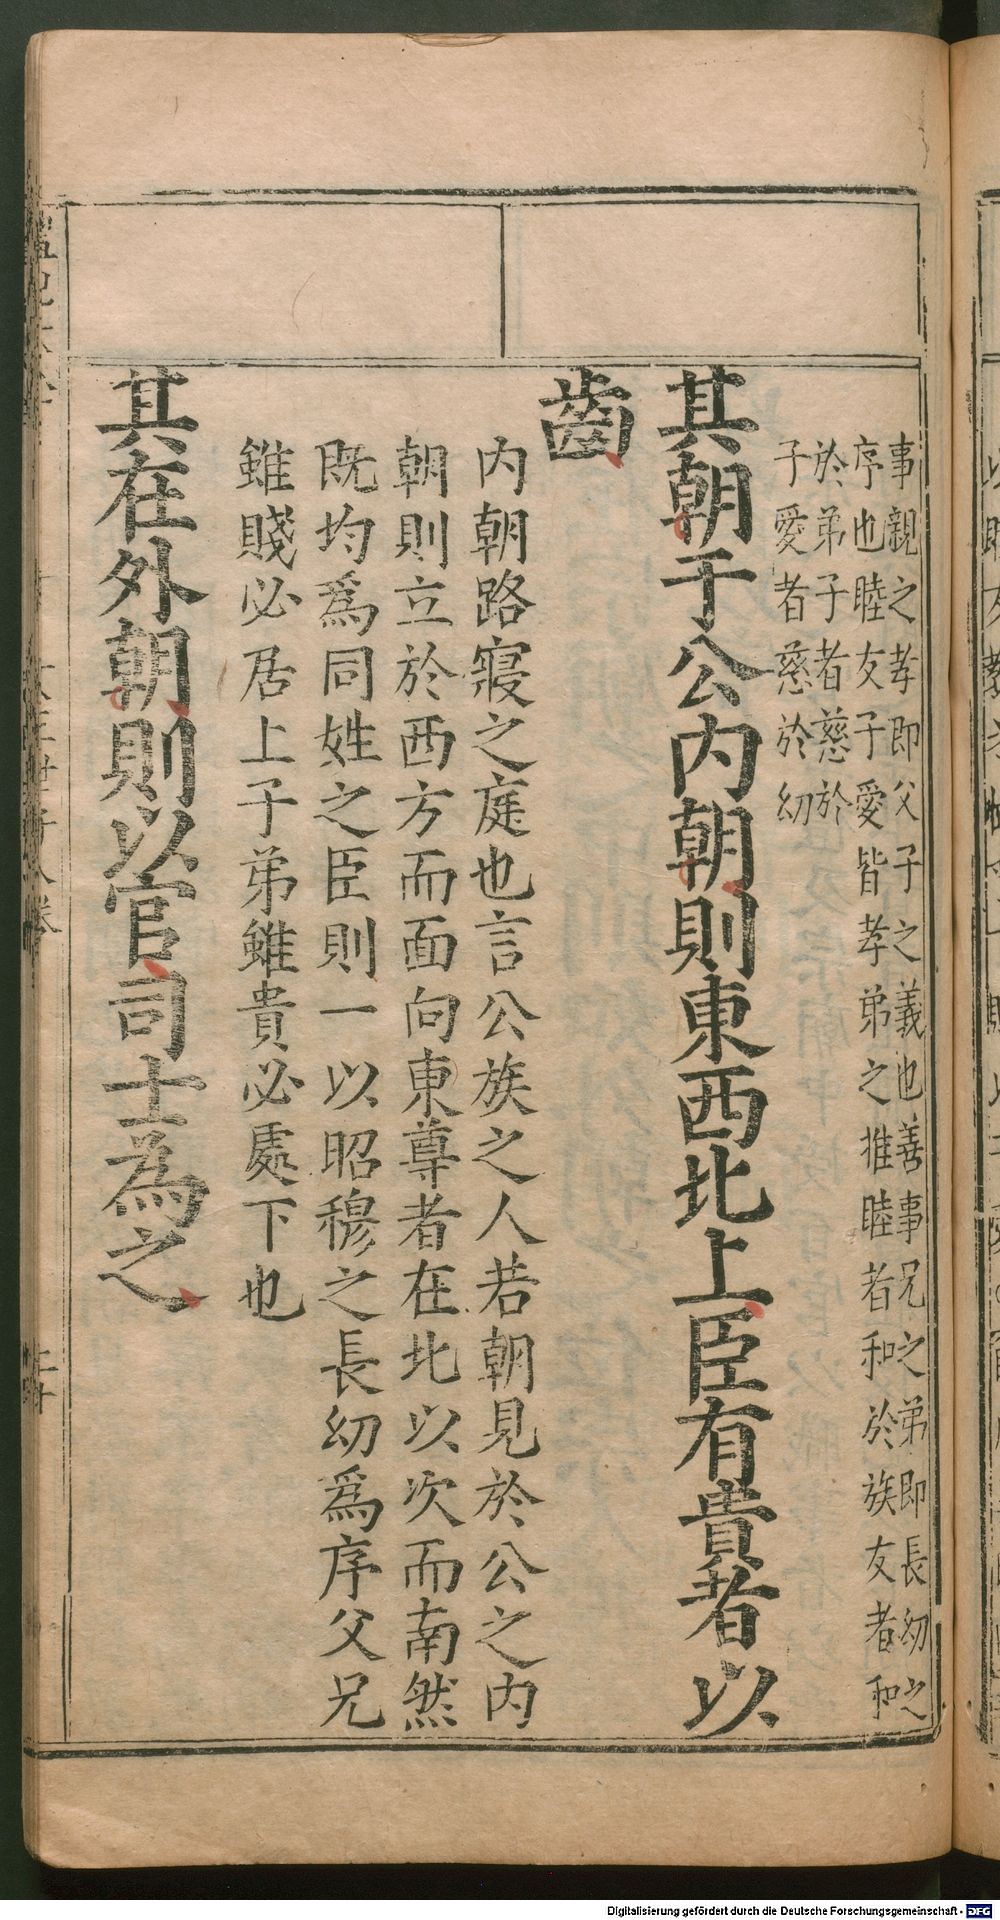 事親之孝即父子之義也善事兄之弟即長幼之
序也睦友子愛皆孝弟之推睦者和於族友者和
於弟子者慈於
子愛者慈於幼
其朝于公内朝則東西北上臣有貴者以
齒
内朝路寢之庭也言公族之人若朝見於公之内
朝則立於西方而面向東尊者在北以次而南然
既均爲同姓之臣則一以昭穆之長幼爲序父兄
雖賤必居上子弟雖貴必處下也
其在外朝則以官司士為之
Digitalisierung gefördert durch die Deutsche Forschungsgemeinschaft - DFG